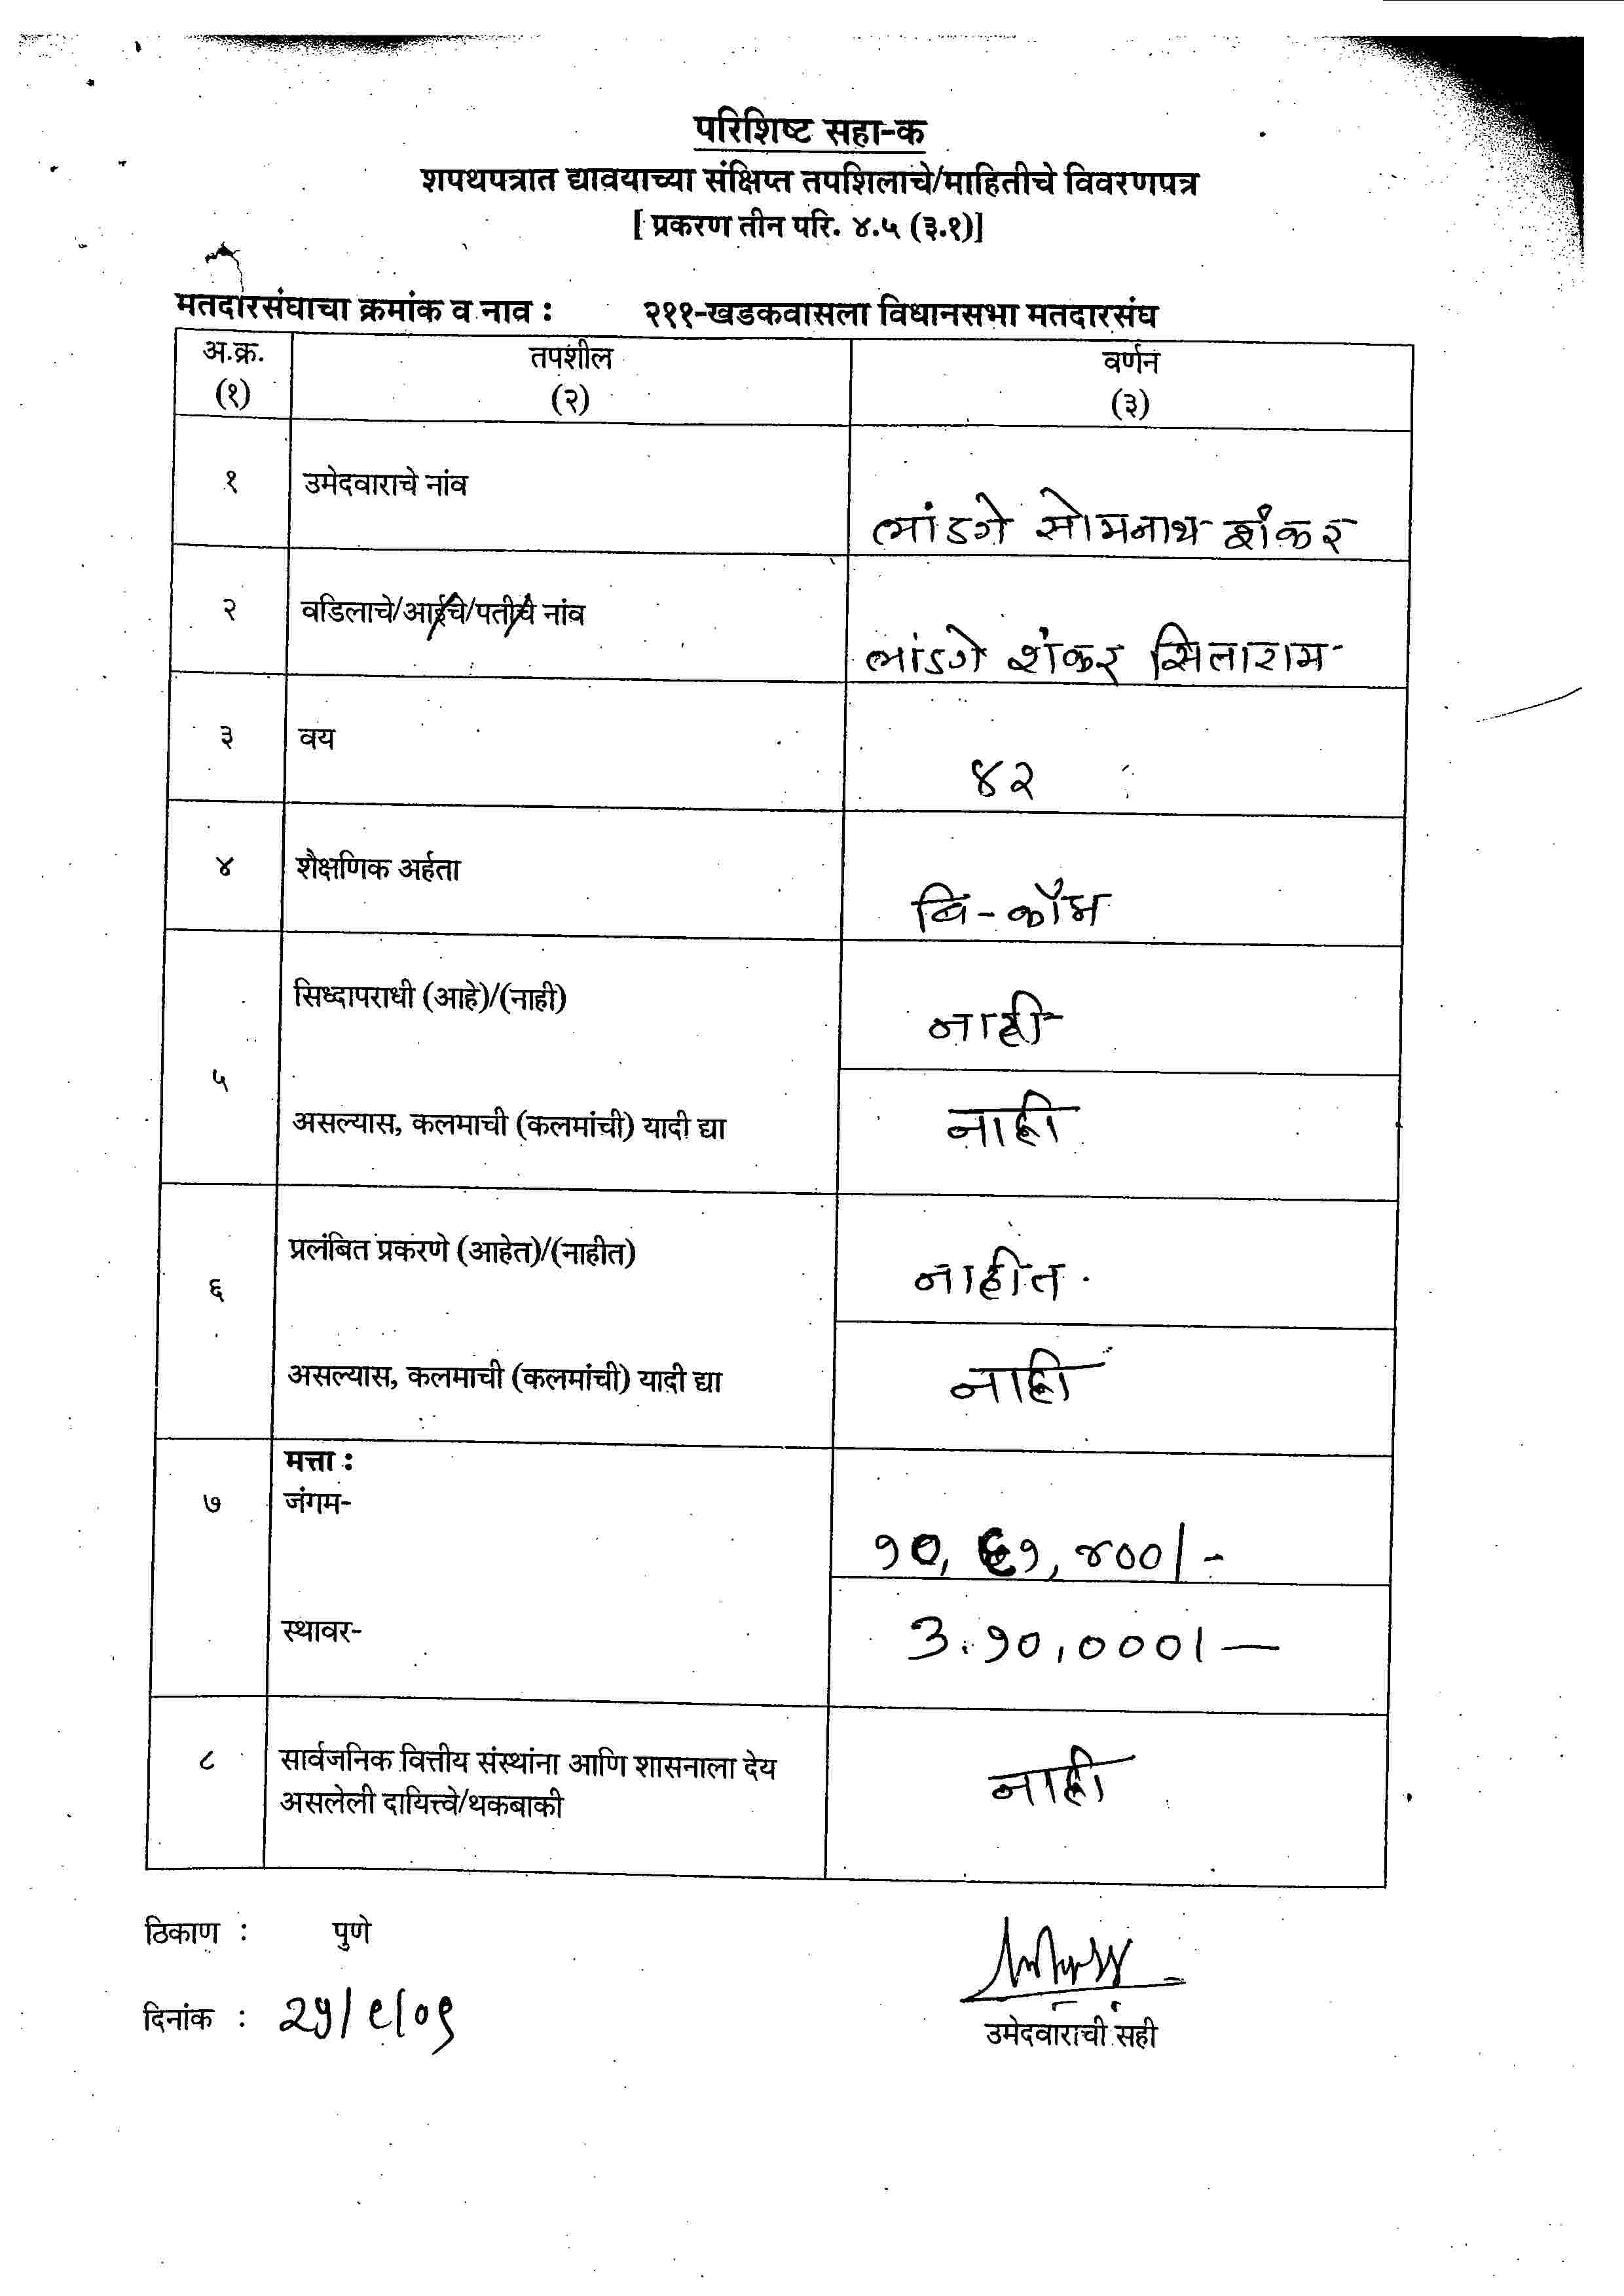 परिशिष्ट सहा-क
शपथपत्रात द्यावयाच्या संक्षिप्त तपशिलाचे/माहितीचे विवरणपत्र
[ प्रकरण तीन परि. ४.५ (३.१)]
मतदारसंघाचा क्रमांक व नाव : २११-खडकवासला विधानसभा मतदारसंघ
अ.क्र. तपशील वर्णन
(१) (२) (३)
१ उमेदवाराचे नांव
भांडगे सोमनाथ शंकर
२ वडिलाचे/आईचे/पतीचे नांव
भांडगे शंकर सिताराम
३ वय
४२
४ शैक्षणिक अर्हता
बि-कॉम
सिध्दापराधी (आहे)/(नाही) नाही
५
असल्यास, कलमाची (कलमांची) यादी द्या नाही
प्रलंबित प्रकरणे (आहेत)/(नाहीत) नाहीत.
६
असल्यास, कलमाची (कलमांची) यादी द्या नाही
मत्ता :
७ जंगम-
१०, ६१, ४००/-
स्थावर- ३.१०,०००/-
८ सार्वजनिक वित्तीय संस्थांना आणि शासनाला देय नाही
असलेली दायित्त्वे/थकबाकी
ठिकाण : पुणे
दिनांक : /९/०९
उमेदवाराची सही